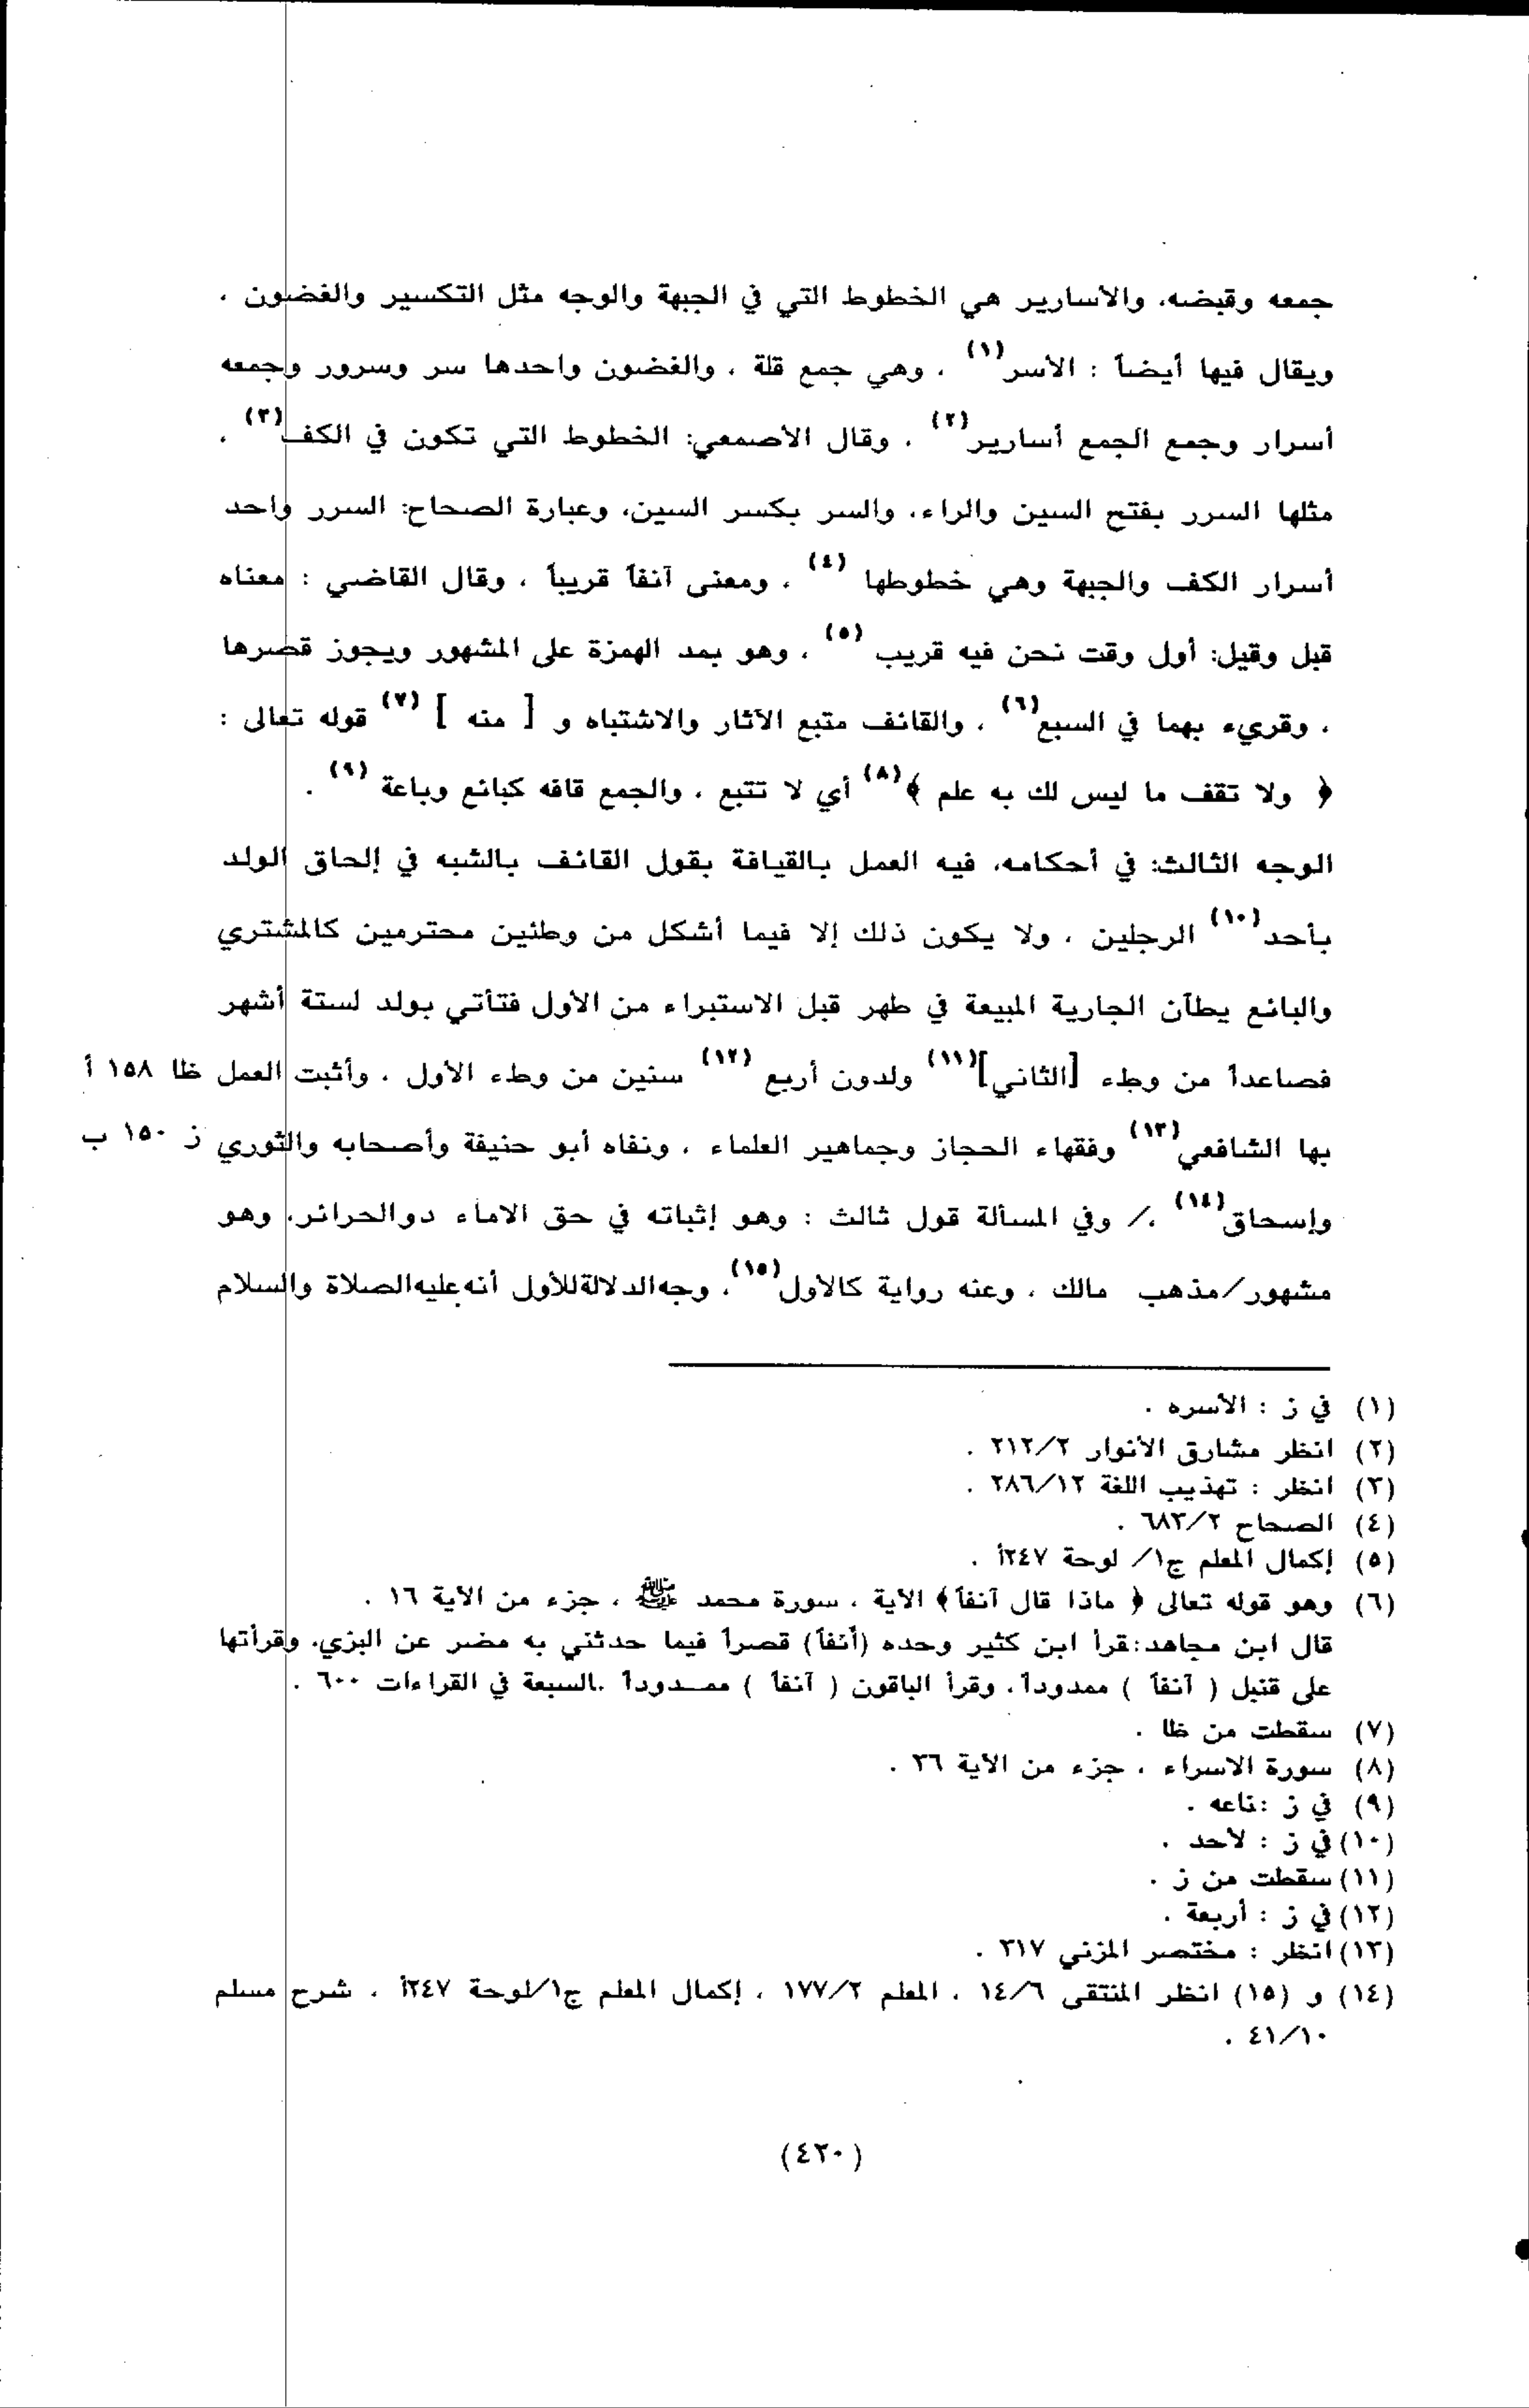 جمعه وقبضه، والأسارير هي الخطوط التي في الجبهة والوجه مثل التكسير والغضون ،
ويقال فيها أيضاً : الأسر(١) ، وهي جمع قلة ، والغضون واحدها سر وسرور وجمعه
أسرار وجمع الجمع أسارير(٢) ، وقال الأصمعي: الخطوط التي تكون في الكف(٣) ،
مثلها السرر بفتح السين والراء، والسر بكسر السين، وعبارة الصحاح: السرر واحد
أسرار الكف والجبهة وهي خطوطها (٤) ، ومعنى آنفاً قريباً ، وقال القاضي : معناه
قبل وقيل: أول وقت نحن فيه قريب (٥) ، وهو بمد الهمزة على المشهور ويجوز قصرها
، وقريء بهما في السبع(٦) ، والقائف متبع الآثار والاشتباه و [ منه ] (٧) قوله تعالى :
﴿ ولا تقف ما ليس لك به علم ﴾(٨) أي لا تتبع ، والجمع قافه كبائع وباعة (٩) .
الوجه الثالث: في أحكامه، فيه العمل بالقيافة بقول القائف بالشبه في إلحاق الولد
بأحد(١٠) الرجلين ، ولا يكون ذلك إلا فيما أشكل من وطئين محترمين كالمشتري
والبائع يطآن الجارية المبيعة في طهر قبل الاستبراء من الأول فتأتي بولد لستة أشهر
فصاعداً من وطء [الثاني](١١) ولدون أربع (١٢) سنين من وطء الأول ، وأثبت العمل ظا ١٥٨ أ
بها الشافعي(١٣) وفقهاء الحجاز وجماهير العلماء ، ونفاه أبو حنيفة وأصحابه والثوري ز ١٥٠ ب
وإسحاق(١٤) ،/ وفي المسألة قول ثالث : وهو إثباته في حق الاماء دوالحرائر، وهو
مشهور/مذهب مالك ، وعنه رواية كالأول(١٥)، وجه الدلالة للأول أنه عليه الصلاة والسلام
(١) في ز : الأسره .
(٢) انظر مشارق الأنوار ٢١٢/٢ .
(٣) انظر : تهذيب اللغة ٢٨٦/١٢ .
(٤) الصحاح ٦٨٣/٢ .
(٥) إكمال المعلم ج١/ لوحة ٢٤٧أ .
(٦) وهو قوله تعالى ﴿ ماذا قال آنفاً ﴾ الآية ، سورة محمد ﷺ ، جزء من الآية ١٦ .
قال ابن مجاهد: قرأ ابن كثير وحده (أنفاً) قصراً فيما حدثني به مضر عن البزي، وقرأتها
على قنبل ( آنفاً ) ممدوداً، وقرأ الباقون ( آنفاً ) ممدوداً .السبعة في القراءات ٦٠٠ .
(٧) سقطت من ظا .
(٨) سورة الاسراء ، جزء من الآية ٣٦ .
(٩) في ز :تاعه .
(١٠) في ز : لأحد .
(١١) سقطت من ز .
(١٢) في ز : أربعة .
(١٣) انظر : مختصر المزني ٣١٧ .
(١٤) و (١٥) انظر المنتقى ١٤/٦ ، المعلم ١٧٧/٢ ، إكمال المعلم ج١/لوحة ٢٤٧أ ، شرح مسلم
٤١/١٠ .
(٤٢٠)